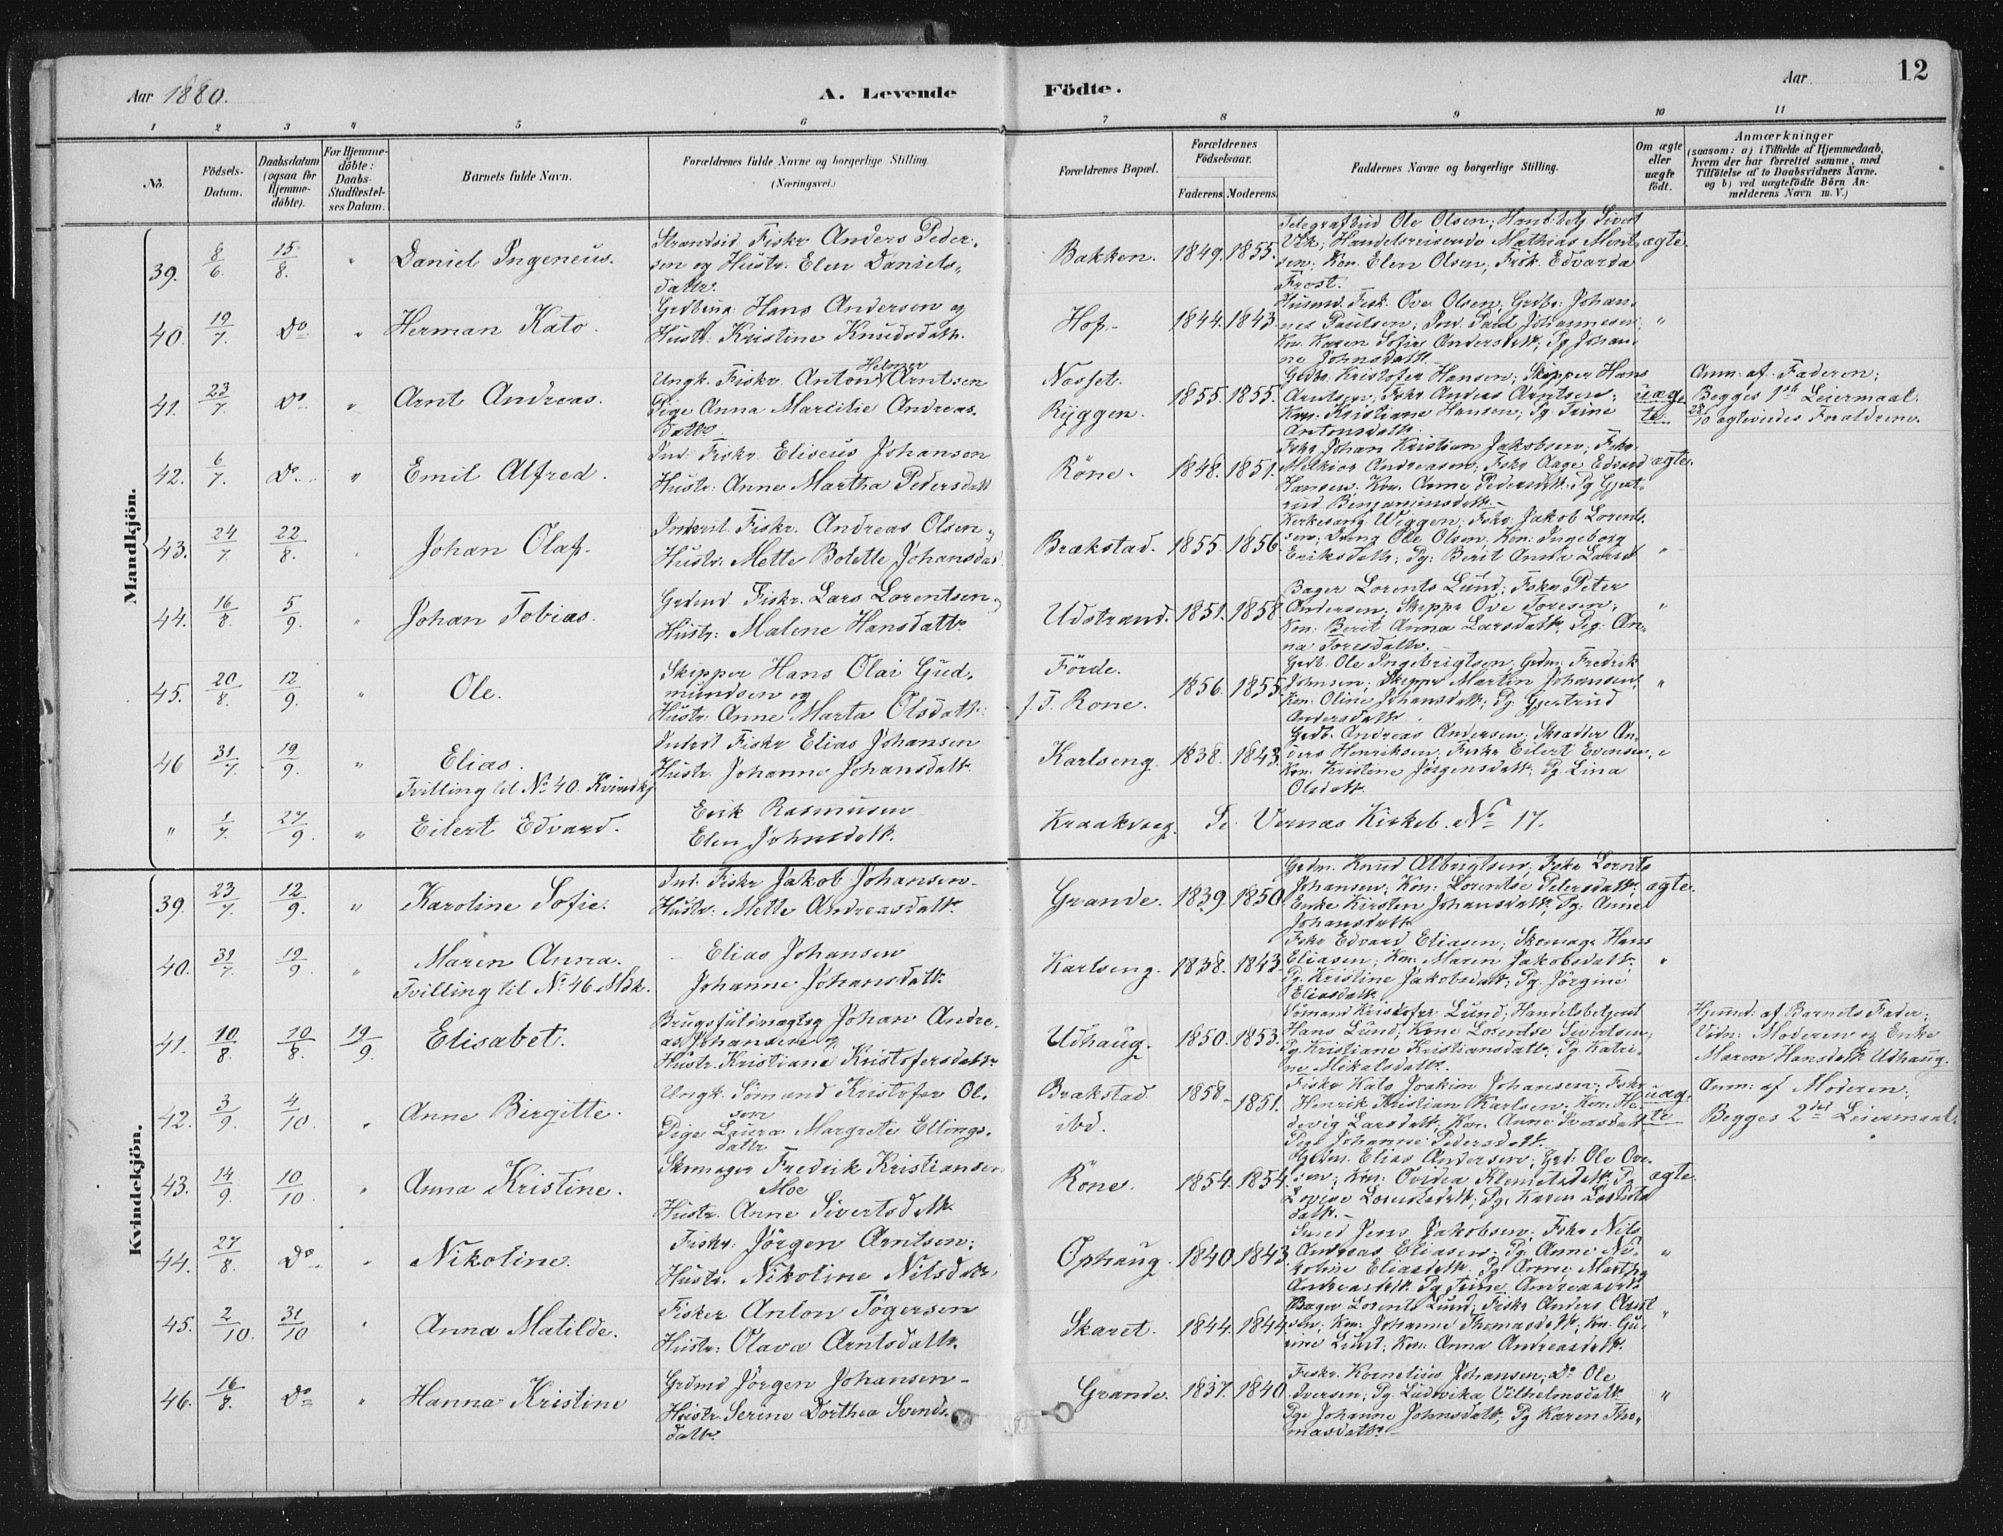 Aar 1880.
A. Levende
Födte.
Aar
12
1 2 3 4 5 6 7 8 9 10 11
No.
Födsels-Datum.
Daabsdatum (ogsaa for Hjemme-döbte).
For Hjemme-döbte: Daabs-Stadfæstel-ses Datum.
Barnets fulde Navn.
Forældrenes fulde Navne og borgerlige Stilling
(Næringsvei.)
Forældrenes Bopæl.
Forældrenes Födselsaar.
Faderens. Moderens.
Faddernes Navne og borgerlige Stilling.
Om ægte eller uægte födt.
Anmærkninger
(saasom: a) i Tilfælde af Hjemmedaab,
hvem der har forrettet samme, med
Tilföielse af to Daabsvidners Navne.
og b) ved uægtefödte Börn An-
melderens Navn m. V.)
Mandkjön.
39. 8/6 15/8. " Daniel Ingeneus.
Strandsid. Fiskr Anders Peder-
sen og Hustr. Elen Daniels-
datr.
Bakken. 1849. 1855.
Telegrafbud Ole Olsen; Handelsbetj Sivert
Vik; Handelsreisende Mathias Morit-
sen; Kon. Elen Olsen; Frök. Edvarda
Frost.
ægte.
40. 19/7. Do " Herman Kato.
Grdbrug. Hans Andersen og
Hustr. Kristine Knudsdatr.
Hof. 1844. 1843.
Husmd. Fisk. Ove Olsen; Grdbr. Johan-
nes Paulsen; Ind. Paul Johannesen;
Kon. Karen Sofie Andersdatr; Pg Johan-
ne Johnsdatr.
"
41. 23/7. Do " Arnt Andreas.
Helmer
Ungk. Fiskr. Anton Arntsen
Pige Anna Marcilie Andreas-
datr
Nosset.
Ryggen.
1855. 1855.
Grdbr. Kristofer Hansen; Skipper Hans
Arntsen; Fskr Anders Arntsen;
Kon. Kristiane Hansen; Pg Trine
Antonsdatr.
uæg-
te.
Anm. af. Faderen;
Begges 1ste Leiermaal.
28/10 ægteviedes Forældrene.
42. 6/7. Do " Emil Alfred.
Ind. Fiskr. Eliseus Johansen
Hustr. Anne Martha Pedersdatr
Röne. 1848. 1851.
Fskr Johan Kristian Jakobsen; Fskr.
Melkior Andreasen; Fskr Aage Edvard
Hansen. Kon. Anne Pedersdatr. Pg Gjert-
rud Benjaminsdatr.
ægte.
43. 24/7 22/8. Johan Olaf.
Inderst. Fiskr. Andreas Olsen
Hustr: Mette Bolette Johansdatr
Brækstad. 1855. 1856.
Kirkesang. Wiggen; Fskr Jakob Lorent-
sen; Dreng Ole Olsen, Kon: Ingeborg
Eriksdatr; Pg: Berit Anna Larsd
"
44. 16/8 5/9. " Johan Tobias.
Grdmd Fiskr. Lars Lorentsen
Hustr: Malene Hansdatr.
Udstrand. 1851. 1858
Bager Lorents Lund; Fskr Peter
Andersen. Skipper Ove Toresen;
Kon: Berit Anna Larsdatr, Pg: An-
na Toresdatr.
"
45. 20/8. 12/9. " Ole.
Skipper Hans Olai Gud-
mundsen og
Hustr: Anne Marta Olsdatr.
Förde.
f. T. Röne.
1856. 1855.
Grdb. Ole Ingebrigtsen, Grdm. Fredrik
Johnsen; Skipper Martin Johansen;
Kon: Oline Johansdatr; Pg Gjertrud
Andersdatr.
"
46 31/7. 19/9. " Elias.
Tvilling til No 40. Kvindkj
Inderst Fiskr Elias Johansen
Hustr. Johanne Johansdatr
Karlseng. 1838. 1843.
Grdb. Andreas Andersen; Skrædder An-
ders Henriksen; Fiskr Eilert Evensen;
Kon. Kristine Jörgensdatr. Pg. Lina
Olsdatr.
"
" 1/7. 27/9. " Eilert Edvard.
Erik Rasmusen
Elen Johnsdatr.
Kraakvaag. Se Vernæs Kirkeb. No 17.
Kvindekjön.
39. 23/7. 12/9. " Karoline Sofie.
Ind. Fiskr Jakob Johansen
Hustr. Mette Andreasdatr.
Grande. 1839. 1850
Grdm. Knud Albrigtsen; Fskr Lornts
Johansen; Kon: Lorentse Petersdatr;
Enke Kirsten Johansdatr; Pg: Anne
Johansdatr
ægte.
40. 31/7 19/9. " Maren Anna.
Tvilling til No 46 Mdk.
Elias Johansen
Johanne Johansdatr.
Karlseng. 1838. 1843.
Fskr Edvard Eliasen; Skomagr Hans
Eliasen; Kon: Maren Jakobsdatr.
Pg Kristine Jakobsdatr; Pg. Jörgine
Eliasdatr
"
41. 10/8. 10/8. 19/9. Elisabet.
Brugsfuldmægtig Johan Andre-
as Johansen og
Hustr. Kristiane Kristofersdatr
Udhaug. 1850. 1853.
Sömand Kristofer Lund; Handelsbetjent
Hans Lund; Kone Lorentse Sivertsen;
Pg Kristiane Kristiansdatr; Pg. Katri-
ne Mikalsdatr.
Hjemmd: af Barnets Fader;
Vidn: Moderen og Enke
Maren Hansdatr Udhaug.
42. 3/9. 4/10. " Anne Birgitte.
Ungk. Sömand Kristofer Ol-
sen
Pige Laura Margrete Ellings-
datr
Brækstad
ibd.
1858 - 1851.
Fiskr Kato Joakim Johansen; Fskr
Henrik Kristian Karlsen; Kon: He-
devig Larsdatr. Kon. Anne Iversdatr
Pige Johanne Pedersdatr.
uæg-
te
Anm: af Moderen;
Begges 2det Leiermaal.
43. 14/9. 10/10. " Anna Kristine.
Skomager Fredrik Kristiansen
Moe
Hustr. Anne Sivertsdatr.
Röne. 1854. 1854.
Elias Andersen; Grd. Ole Ove-
sen; Kon: Ovidia Klemetsdatr; Pg
Lovise Lorentsdatr; Pg. Karen Lornts
datr.
ægte.
44. 27/8. Do " Nikoline.
Fiskr. Jörgen Arntsen;
Hustr. Nikoline Nilsdatr
Ophaug. 1840. 1843.
Smed Jens Jakobsen; Fskr Nils
Andreas Eliasen. Pg. Anne Ni-
koline Eliasdatr. Pg Anne Martha
Andreasdatr. Pg Trine Andreasdatr
"
45. 2/10. 31/10 " Anna Matilde.
Fisker Anton Tögersen
Hustr: Olava Arntsdatr.
Skaret. 1844. 1844.
Bager Lorents Lund; Fiskr Anders Arnt-
sen; Kon: Johanne Thomasdatr; Kon. Gu-
rine Lund; Kon: Anna Andreasdatr.
"
46. 16/8. Do " Hanna Kristine
Grdmd Jörgen Johansen
Hustr Serine Dorthea Svends-
datr.
Grande. 1837. 1840.
Fiskr. Kornelius Johansen; Do Ole
Iversen; Pg Ludvika Vilhelmsdatr
Pige Johanne Johnsdatr; Pg Karen Tho-
masdatr.
"